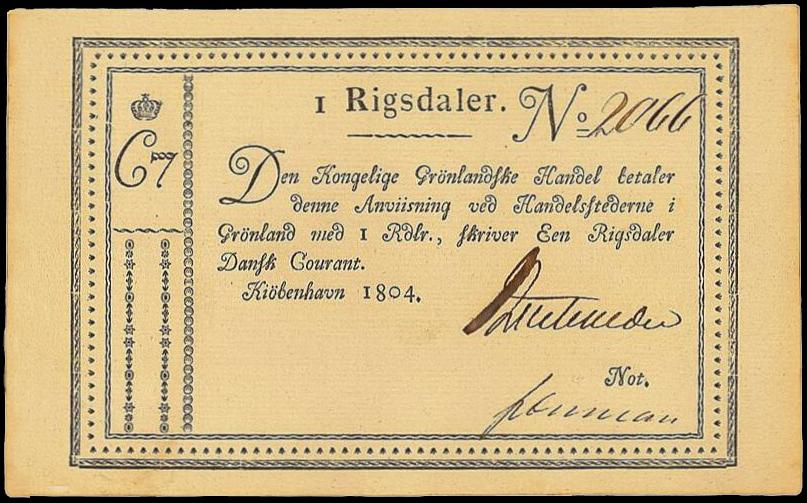 1 Rigsdaler. No 2066
C7
Den Kongelige Grönlandſke Handel betaler
denne Anviisning ved Handelsſtederne i
Grönland med 1 Rdlr., ſkriver Een Rigsdaler
Danſk Courant.
Kiöbenhavn 1804.
Not.